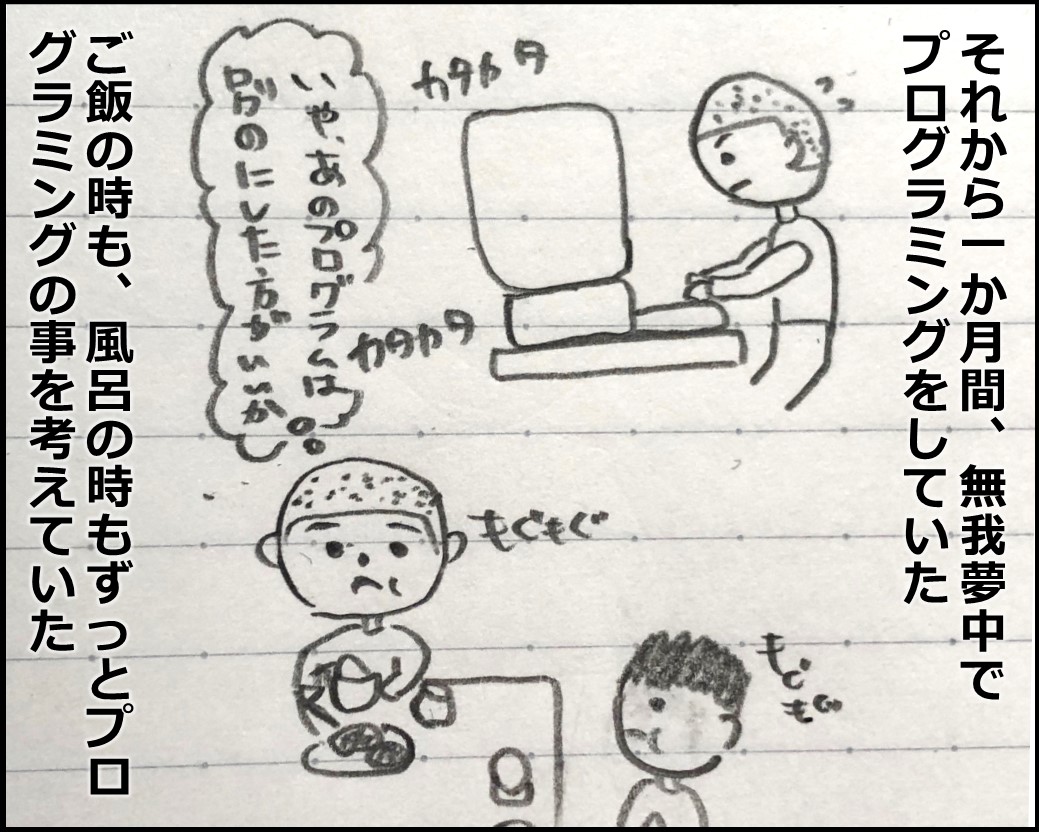 それから一か月間、無我夢中で
プログラミングをしていた
カタカタ
いや、あのプログラムは
別のにした方がいいか
カタカタ
もぐもぐ
もぐ
もぐ
ご飯の時も、風呂の時もずっとプロ
グラミングの事を考えていた